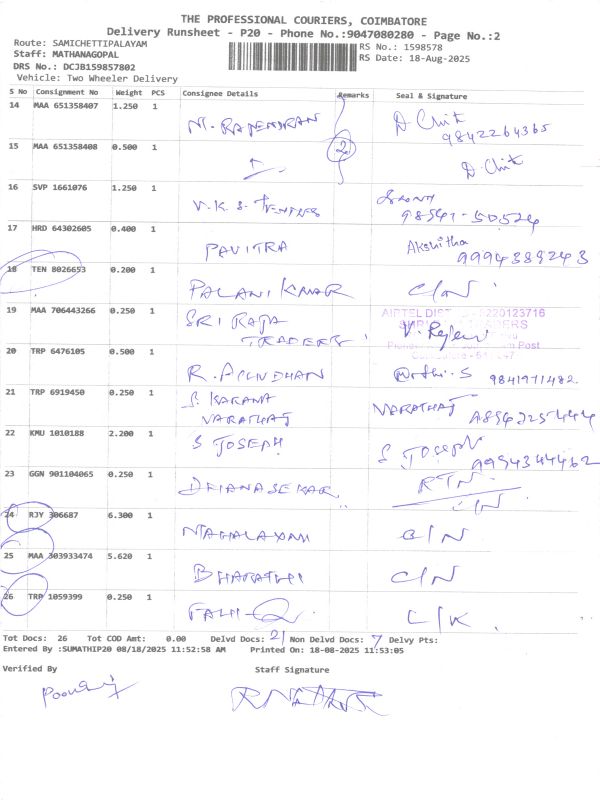 THE PROFESSIONAL COURIERS, COIMBATORE
Delivery Runsheet - P20 - Phone No.:9047080280 - Page No.:2
Route: SAMICHETTIPALAYAM
RS No.: 1598578
Staff: MATHANAGOPAL
RS Date: 18-Aug-2025
DRS No.: DCJB159857802
Vehicle: Two Wheeler Delivery
S No Consignment No Weight PCS Consignee Details Remarks Seal & Signature
14 MAA 651358407 1.250 1 M. RAJENDRAN D. Chik
9842264365
15 MAA 651358408 0.500 1 2 D. Chik
16 SVP 1661076 1.250 1 V.K.S. TEXTILES
98541-50524
17 HRD 64302605 0.400 1 PAVITRA Akshitha
9994389243
18 TEN 8026653 0.200 1 PALANI KUMAR C/N
19 MAA 706443266 0.250 1 SRI RAJA
TRADERS
AIRTEL DIST 5220123716
20 TRP 6476105 0.500 1 R. 9841971482
21 TRP 6919450 0.250 1 S. KARANA
VARATHAJ
VARATHAJ
22 KMU 1010188 2.200 1 S JOSEPH S JOSEPH
9994344462
23 GGN 901104065 0.250 1 DHANASEKAR RTN
24 RJY 306687 6.300 1 NAGALAXMI C/N
25 MAA 303933474 5.620 1 BHARATHI C/N
26 TRP 1059399 0.250 1 L/K
Tot Docs: 26 Tot COD Amt: 0.00 Delvd Docs: 21 Non Delvd Docs: 7 Delvy Pts:
Entered By :SUMATHIP20 08/18/2025 11:52:58 AM Printed On: 18-08-2025 11:53:05
Verified By Staff Signature